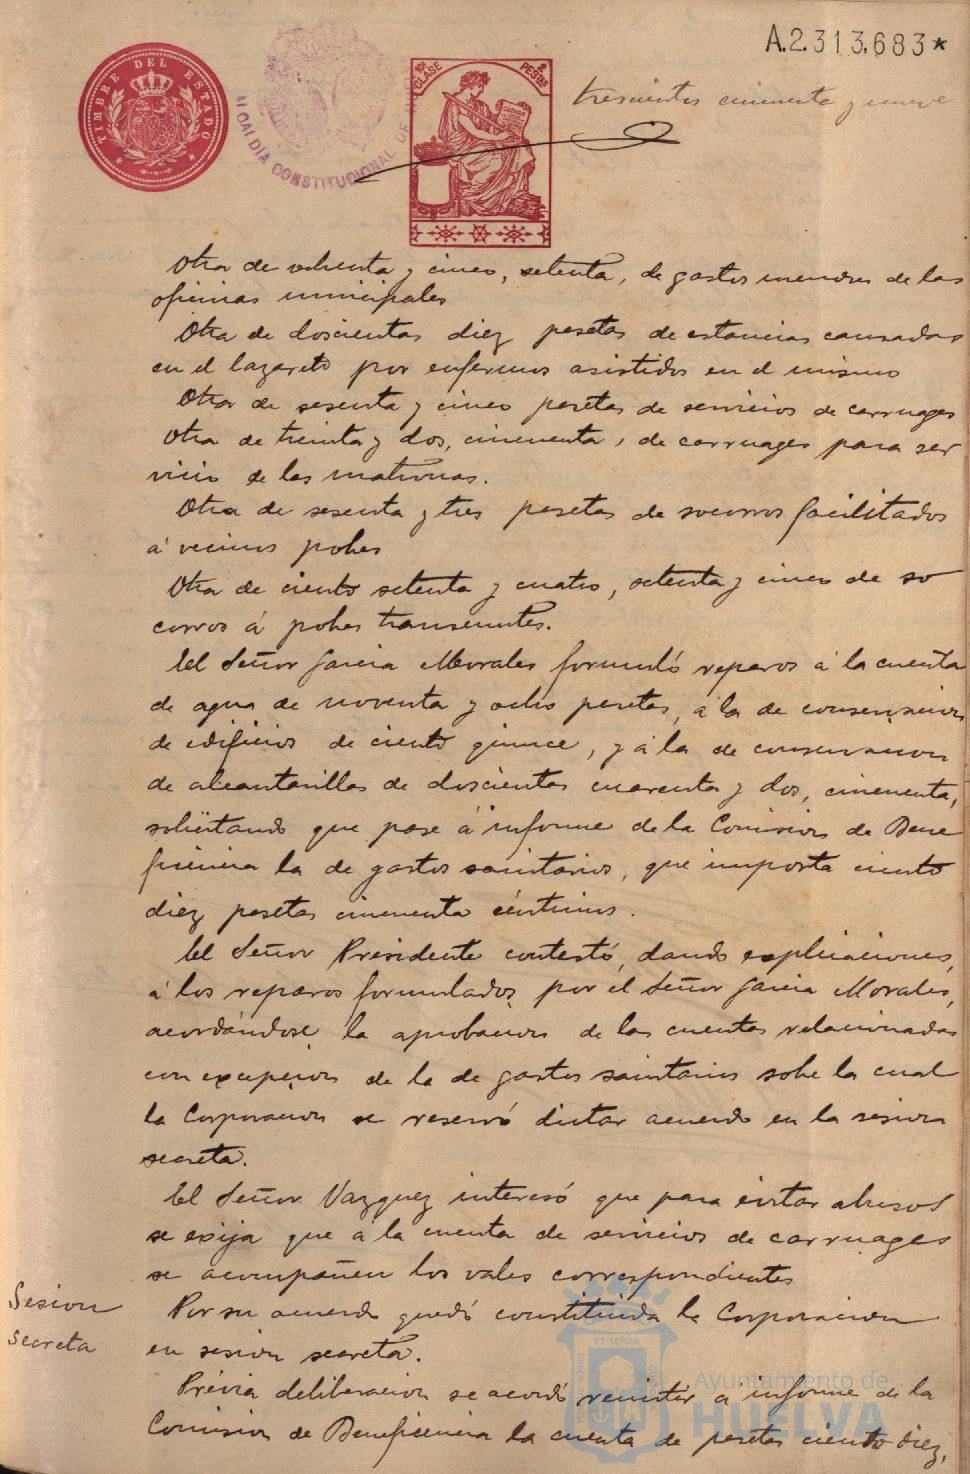 A.2.313,683*
TIMBRE DEL ESTADO
ALCALDIA CONSTITUCIONAL DE
10ª CLASE
2 PESTAS
trescientos cincuenta y nueve
Otra de ochenta y cinco, setenta, de gastos menores de las
oficinas municipales
Otra de doscientas diez pesetas de estancias causadas
en el lazareto por enfermos asistidos en el mismo
Otra de sesenta y cinco pesetas de servicios de carruages
Otra de treinta y dos, cincuenta, de carruages para ser
vicio de las matronas.
Otra de sesenta y tres pesetas de socorros facilitados
á vecinos pobres
Otra de ciento setenta y cuatro, setenta y cinco de so
corros á pobres transeuntes.
El Señor Garcia Morales formuló reparos á la cuenta
de agua de noventa y ocho pesetas, á la de conservacion
de edificios de ciento quince, y á la de conservacion
de alcantarillas de doscientas cuarenta y dos, cincuenta,
solicitando que pase á informe de la Comision de Bene
ficencia la de gastos sanitarios, que importa ciento
diez pesetas cincuenta céntimos.
El Señor Presidente contestó, dando explicaciones,
á los reparos formulados por el Señor Garcia Morales,
acordándose la aprobacion de las cuentas relacionadas
con excepcion de la de gastos sanitarios sobre la cual
la Corporacion se reservó dictar acuerdo en la sesion
secreta.
El Señor Vazquez interesó que para evitar abusos
se exija que á la cuenta de servicios de carruages
se acompañen los vales correspondientes
Sesion
secreta
Por su acuerdo quedó constituida la Corporacion
en sesion secreta.
Prévia deliberacion se acordó remitir á informe de la
Comision de Beneficencia la cuenta de pesetas ciento diez,
Ayuntamiento de
HUELVA